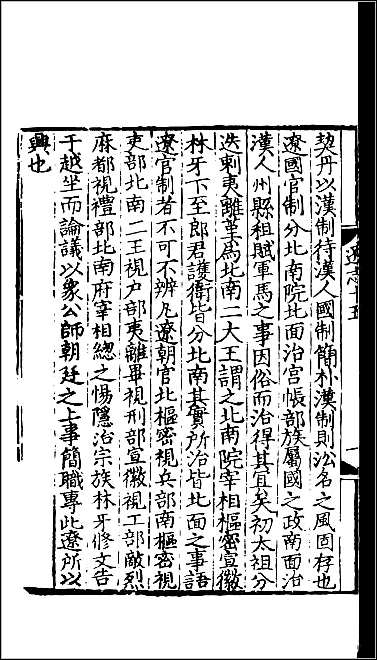 契丹以漢制待漢人國制簡朴漢制則沿名之風固存也
遼國官制分北南院北面治宮帳部族屬國之政南面治
漢人州縣租賦軍馬之事因俗而治得其宜矣初太祖分
迭剌夷離堇為北南二大王謂之北南院宰相樞密宣徽
林牙下至郎君護衛皆分北南其實所治皆北面之事語
遼官制者不可不辨凡遼朝官北樞密視兵部南樞密視
吏部北南二王視户部夷離畢視刑部宣徽視工部敵烈
麻都視禮部北南府宰相總之惕隱治宗族林牙修文告
于越坐而論議以象公師朝廷之上事簡職專此遼所以
興也